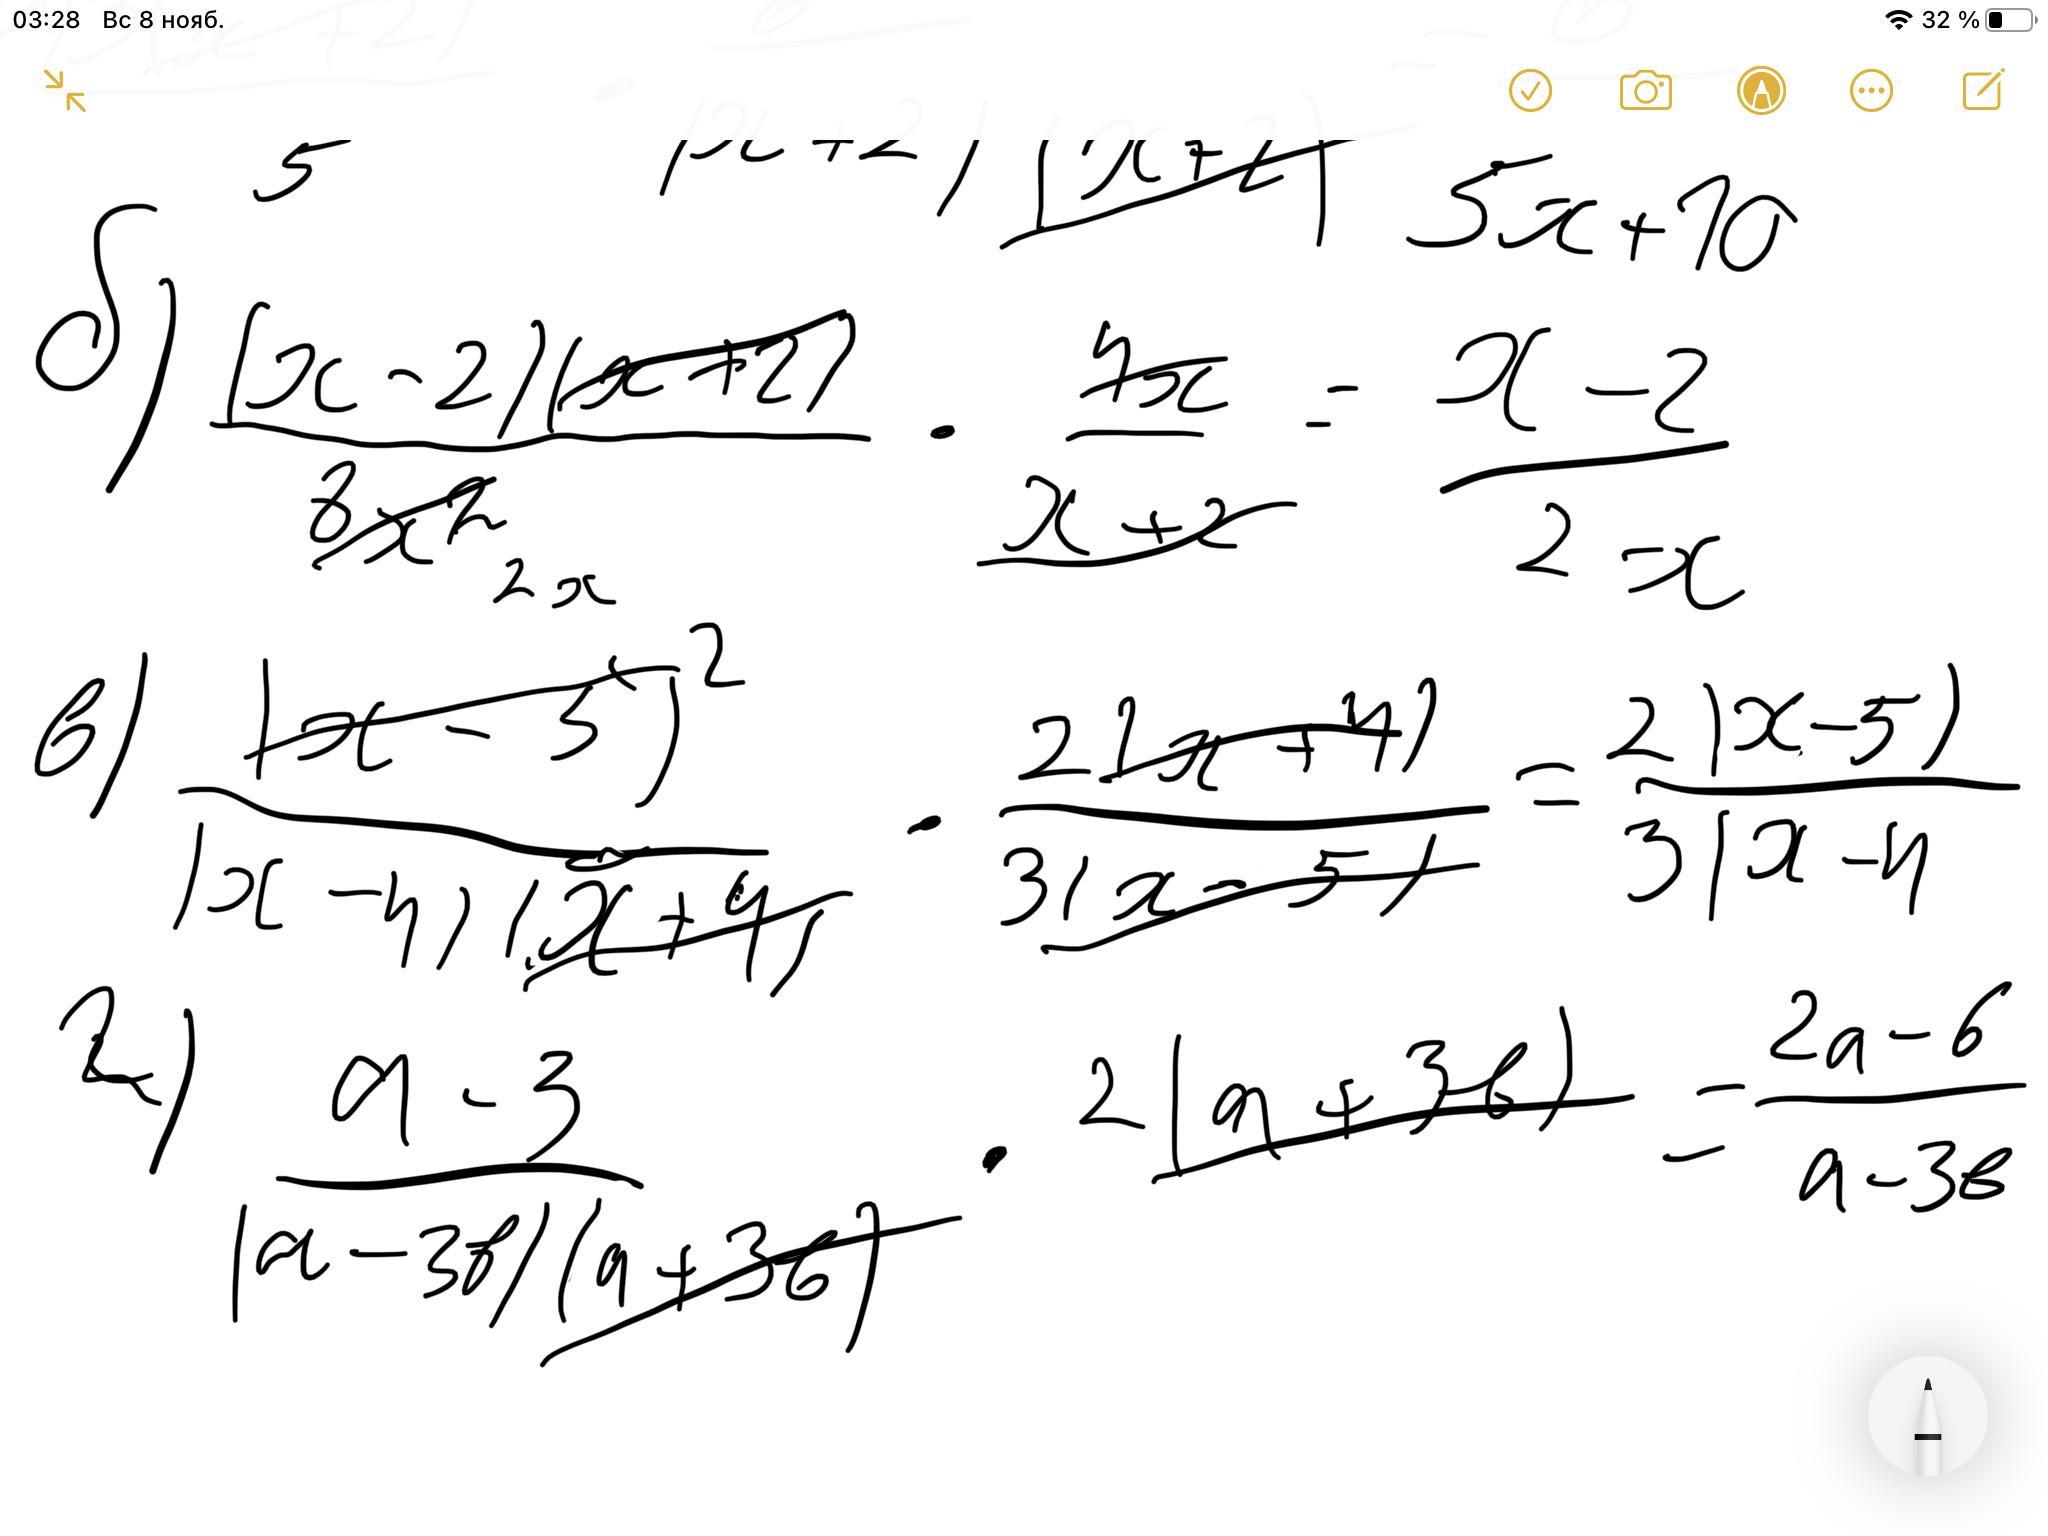 03:28 Вс 8 нояб. 32 %
5 (x+2) (x+2) 5x+10
б) (x-2)(x+2) / 8x² 2x · 4x / x+2 = x-2 / 2x
в) (x-5)² / (x-4)(x+4) · 2(x+4) / 3(x-5) = 2(x-5) / 3(x-4
г) a-3 / (a-3в)(a+3в) · 2(a+3в) = 2a-6 / a-3в